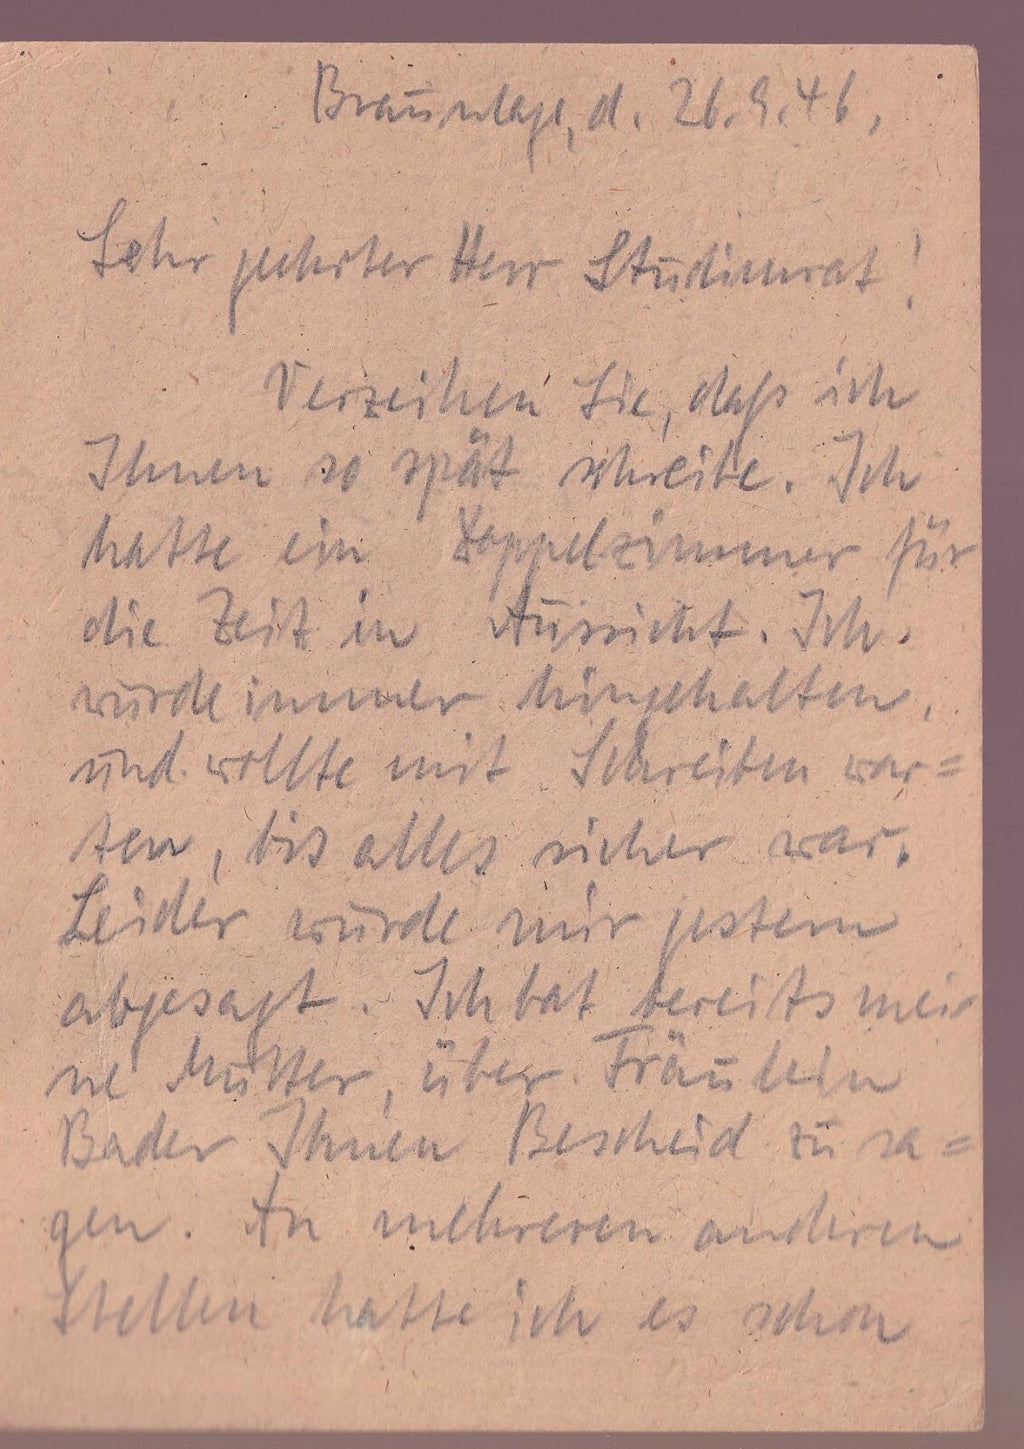 Braunlage, d. 26.9.46.
Sehr geehrter Herr Studienrat!
Verzeihen Sie, daß ich
Ihnen so spät schreibe. Ich
hatte ein Doppelzimmer für
die Zeit in Aussicht. Ich
wurde immer hingehalten,
und wollte mit Schreiben war=
ten, bis alles sicher war.
Leider wurde mir gestern
abgesagt. Ich bat bereits mei
ne Mutter, über Fräulein
Bader Ihnen Bescheid zu sa=
gen. An mehreren anderen
Stellen hatte ich es schon